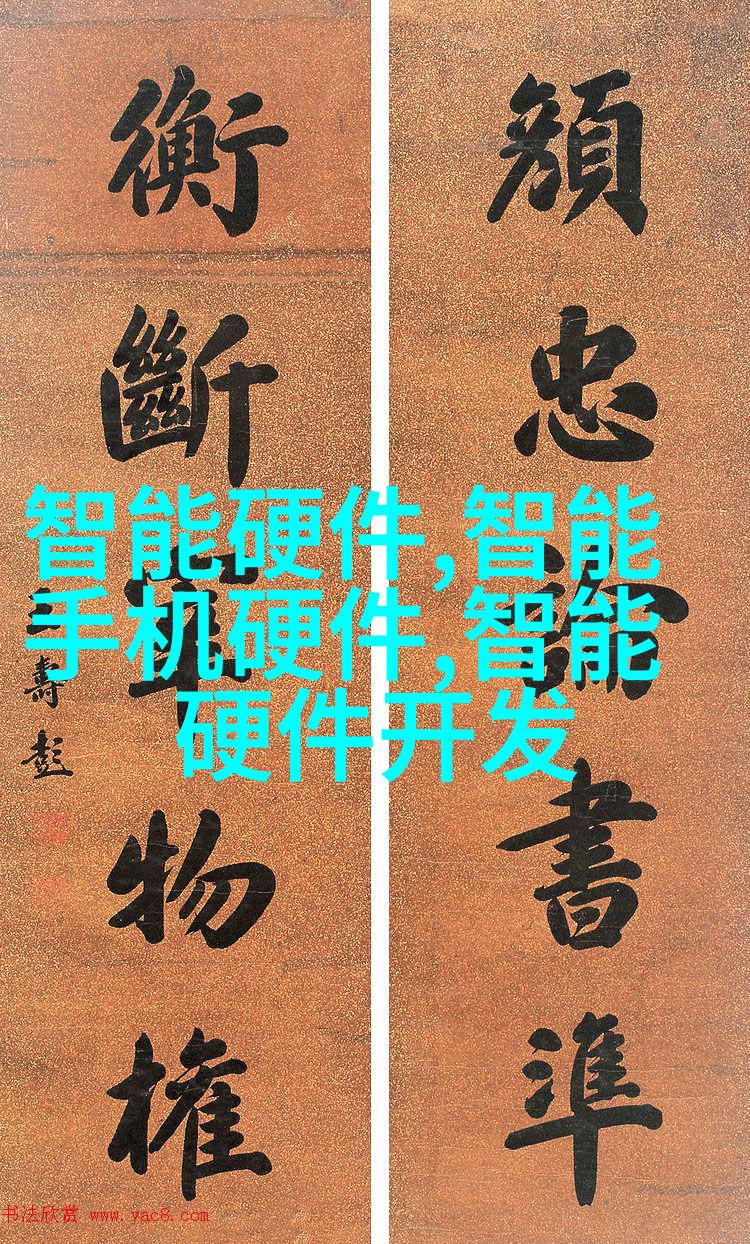 忠書準
衡斷物權
壽彭
智能硬件,智能
手机硬件,智能
硬件开发
书法欣赏 www.yac8.com